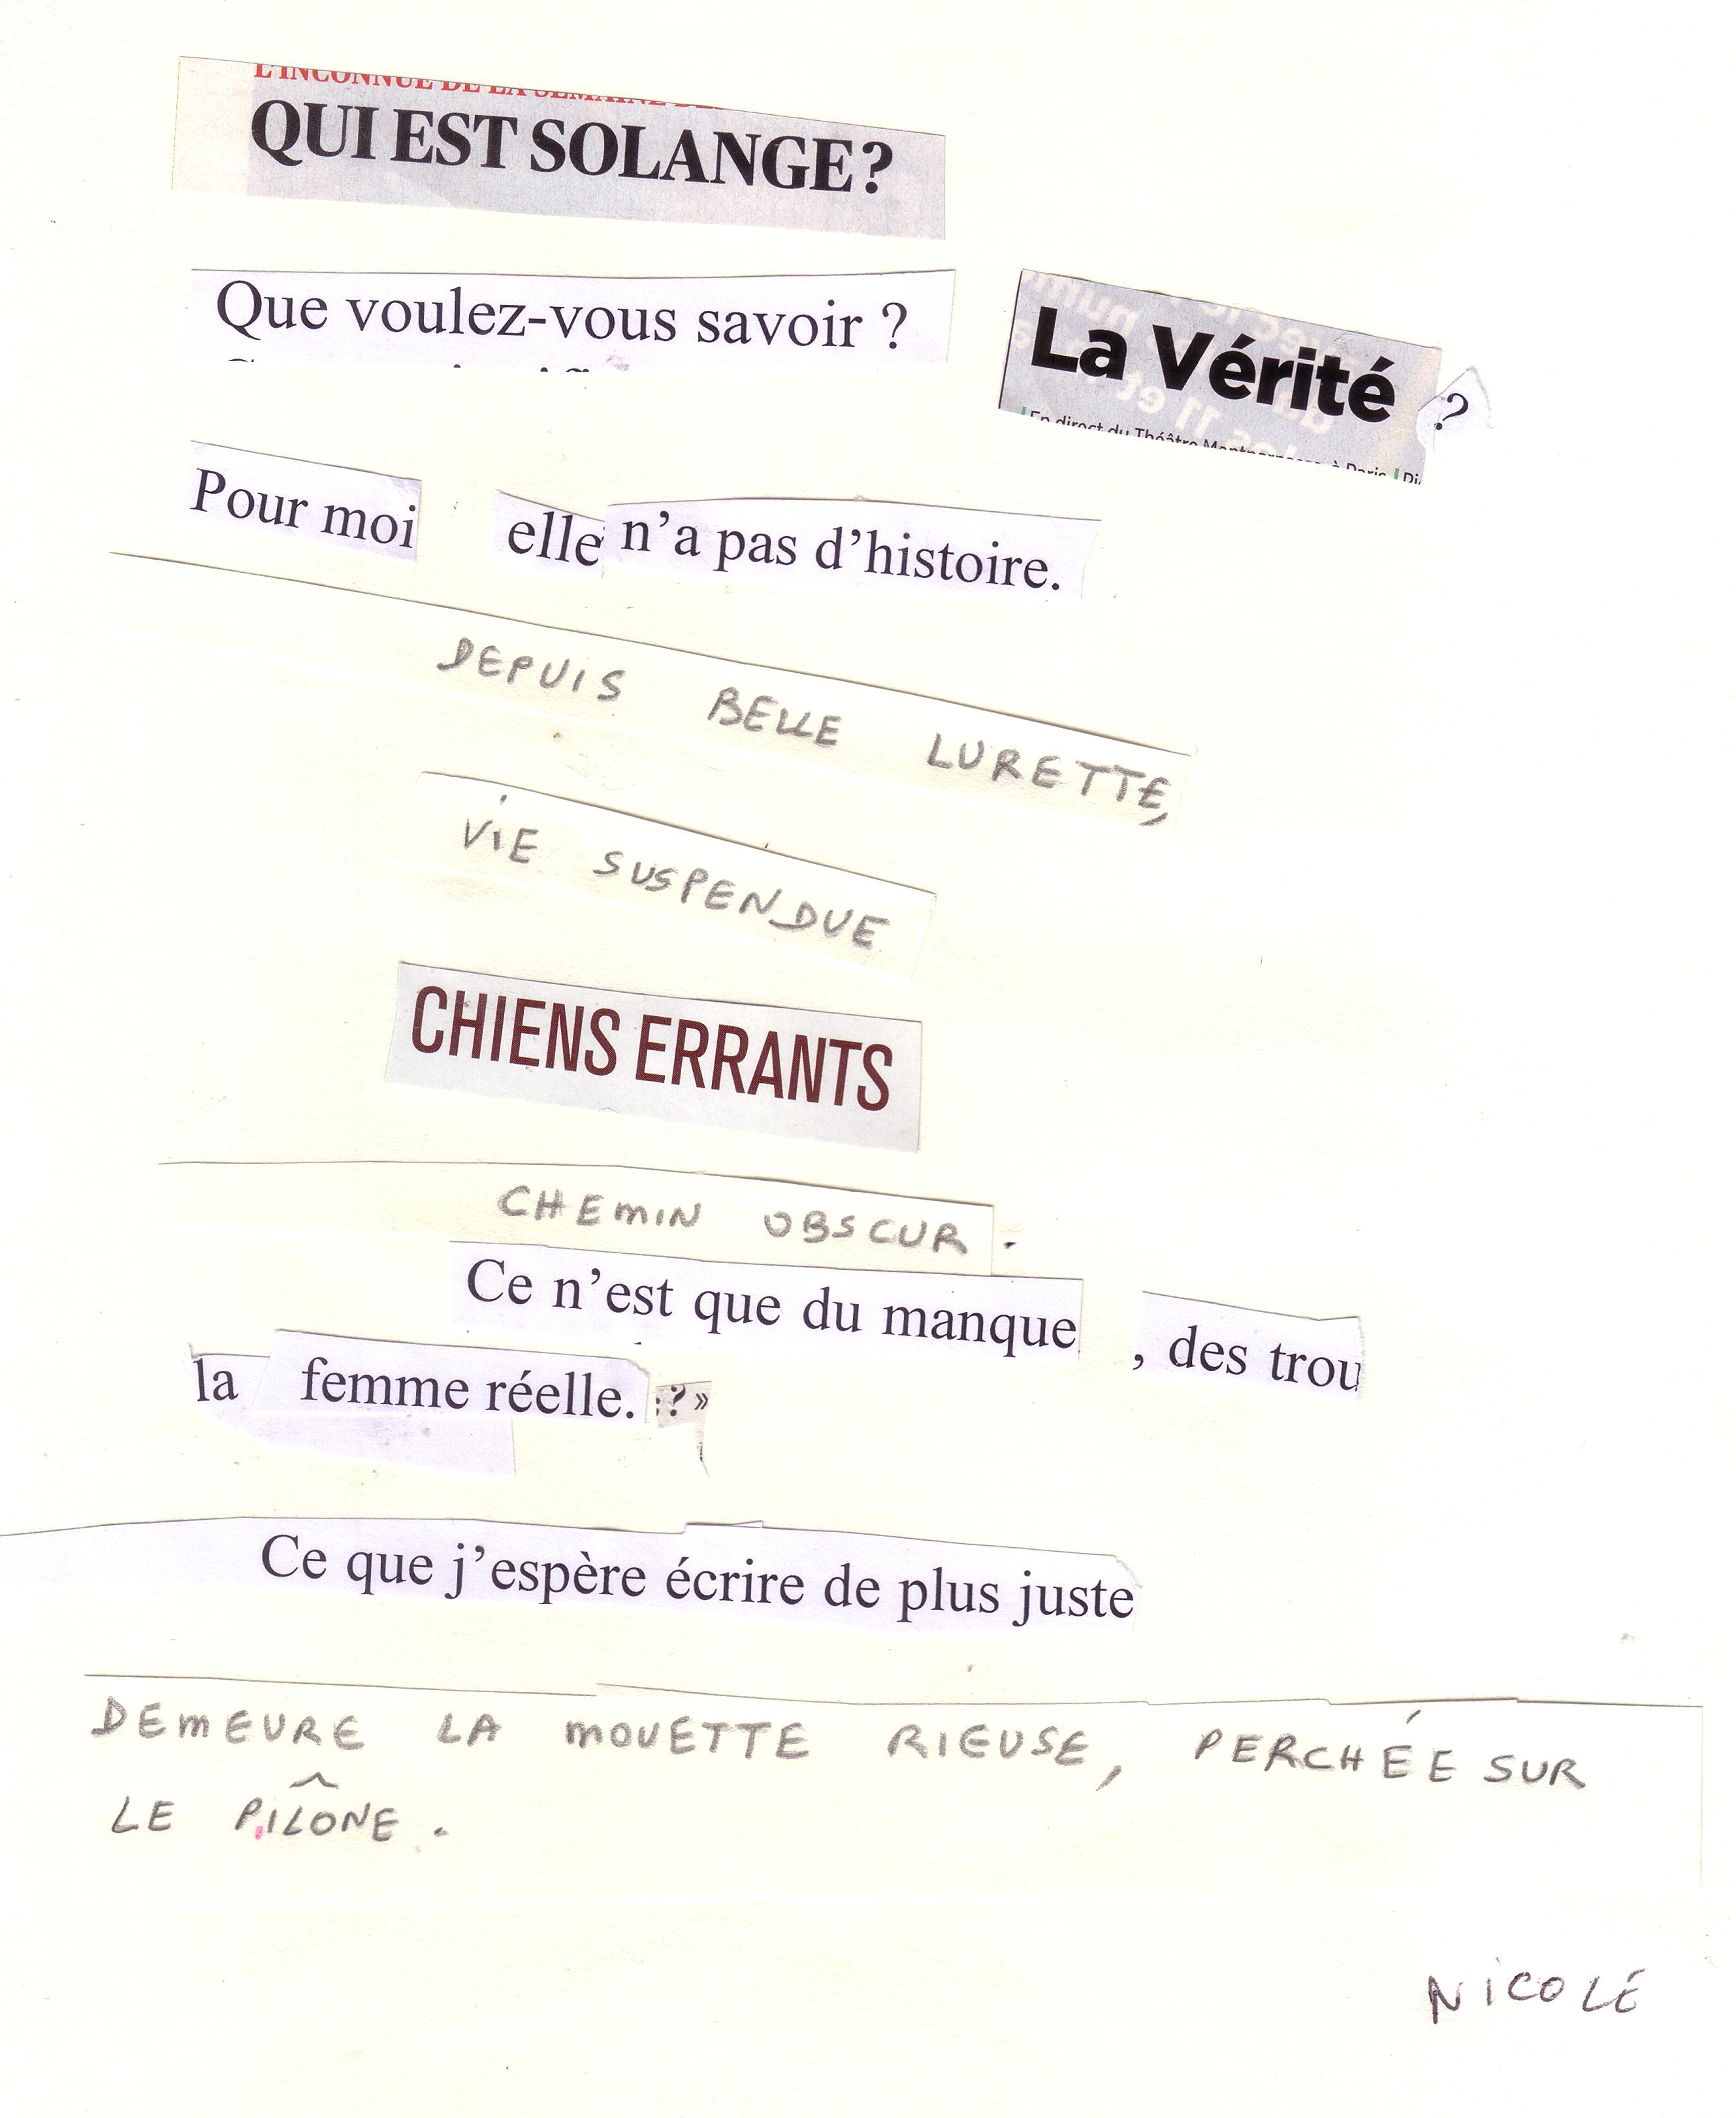 L'INCONNUE DE LA SEMAINE
QUI EST SOLANGE?
Que voulez-vous savoir ?
La Vérité ?
En direct du Théâtre Montparnasse à Paris
Pour moi elle n'a pas d'histoire.
DEPUIS BELLE LURETTE,
VIE SUSPENDUE
CHIENS ERRANTS
CHEMIN OBSCUR .
Ce n'est que du manque , des trou
la femme réelle. ? »
Ce que j'espère écrire de plus juste
DEMEURE LA MOUETTE RIEUSE, PERCHÉE SUR
LE PILÔNE .
NICOLE